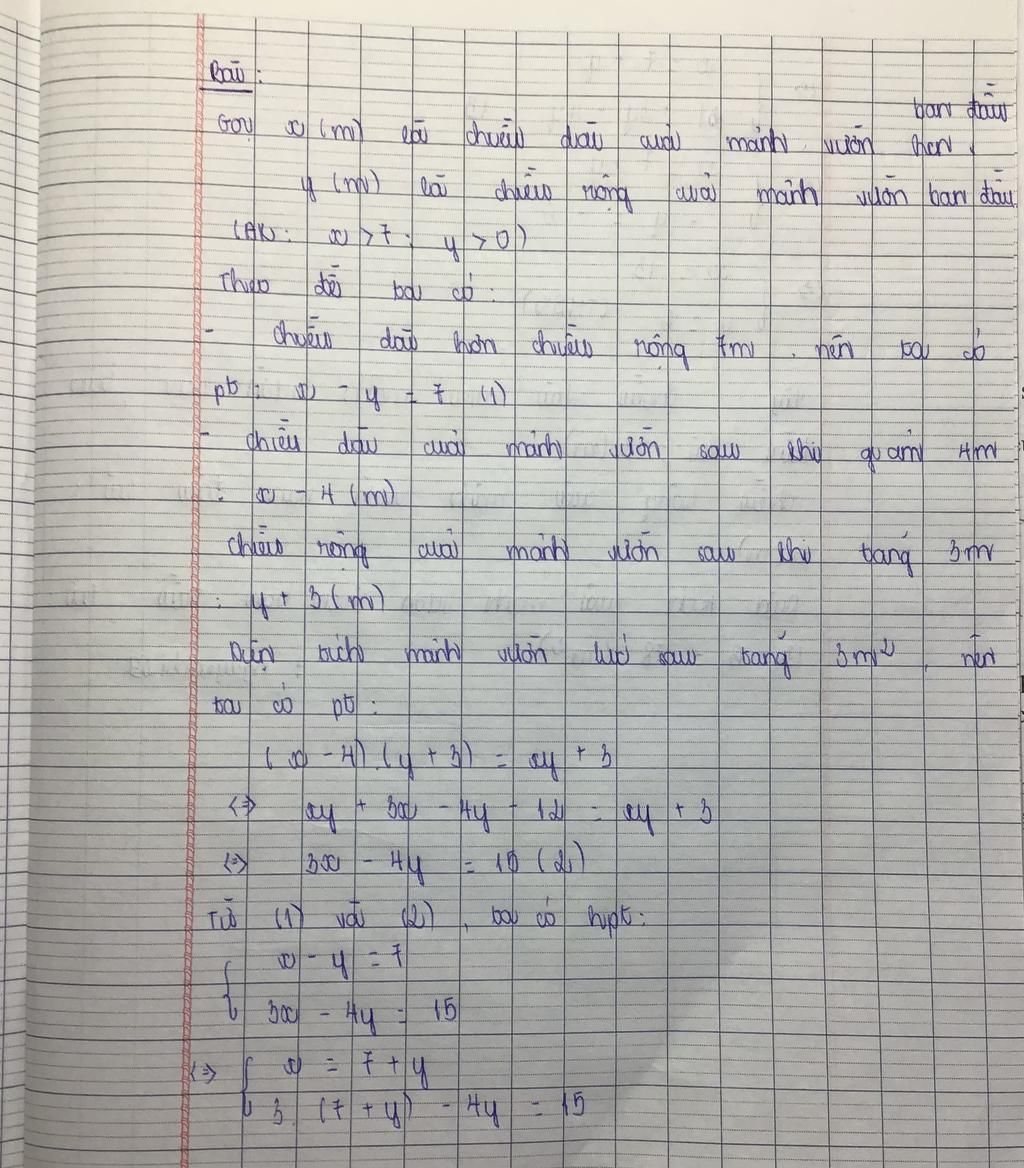 Bài:
Gọi x (m) là chiều dài của mảnh vườn hcn ban đầu
y (m) là chiều rộng của mảnh vườn ban đầu
(ĐK: x > 7; y > 0)
Theo đề ta có:
- Chiều dài hơn chiều rộng 7m, nên ta có
pt: x - y = 7 (1)
- chiều dài của mảnh vườn sau khi giảm 4m
: x - 4 (m)
chiều rộng của mảnh vườn sau khi tăng 3m
: y + 3 (m)
Diện tích mảnh vườn lúc sau tăng 3m², nên
ta có pt:
(x - 4).(y + 3) = xy + 3
<=> xy + 3x - 4y - 12 = xy + 3
<=> 3x - 4y = 15 (2)
Từ (1) và (2), ta có hpt:
{ x - y = 7
3x - 4y = 15
<=> { x = 7 + y
3. (7 + y) - 4y = 15